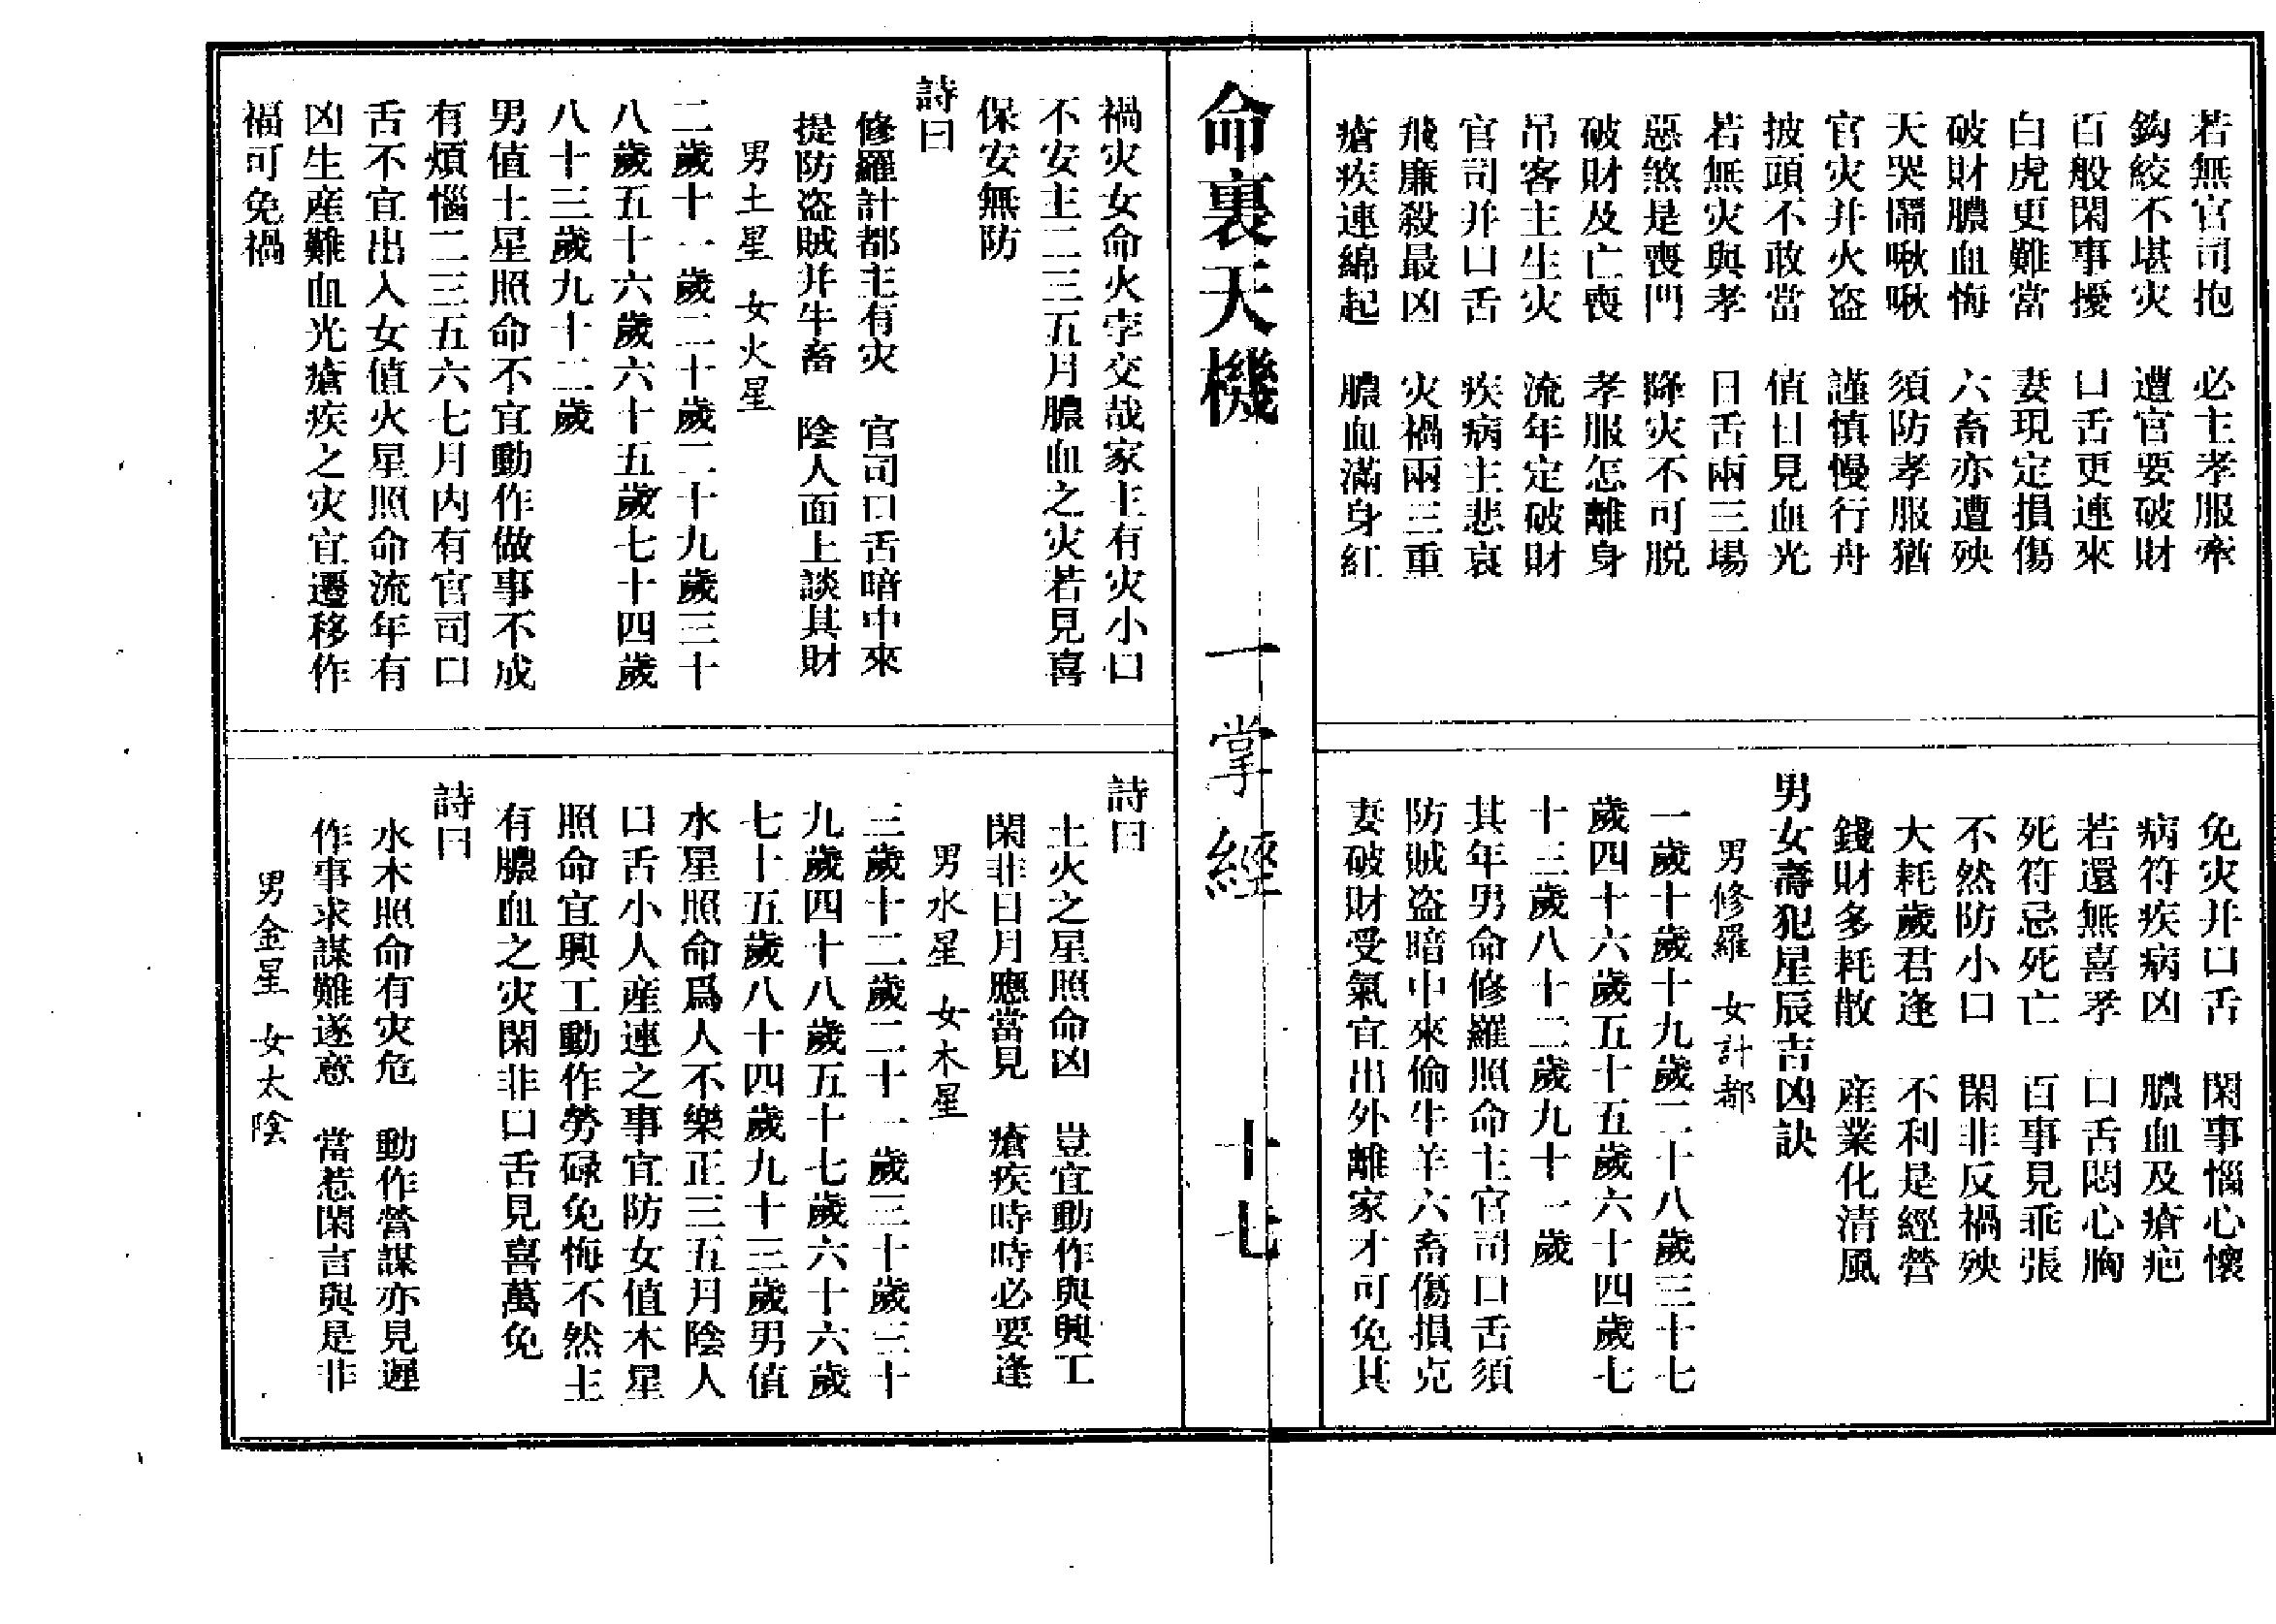 若無官司抱　必主孝服牽
鈎絞不堪灾　遭官要破財
百般閑事擾　口舌更連來
白虎更難當　妻現定損傷
破財膿血悔　六畜亦遭殃
天哭鬧啾啾　須防孝服猶
官灾并火盗　謹慎慢行舟
披頭不敢當　值日見血光
若無灾與孝　日舌兩三場
惡煞是喪門　降灾不可脱
破財及亡喪　孝服怎離身
吊客主生灾　流年定破財
官司并口舌　疾病主悲哀
飛廉殺最凶　火禍兩三重
瘡疾連綿起　膿血滿身紅
免灾并口舌　閑事惱心懷
病符疾病凶　膿血及瘡疤
若還無喜孝　口舌悶心胸
死符忌死亡　百事見乖張
不然防小口　閑非反禍殃
大耗歲君逢　不利是經營
錢財多耗散　産業化清風
男女壽犯星辰吉凶訣
男修羅　女計都
一歲十歲十九歲二十八歲三十七
歲四十六歲五十五歲六十四歲七
十三歲八十二歲九十一歲
其年男命修羅照命主官司口舌須
防賊盗暗中來偷牛羊六畜傷損克
妻破財受氣宜出外離家才可免其
命裏天機　一掌經　十七
禍灾女命火孛交哉家主有灾小口
不安主二三五月膿血之灾若見喜
保安無防
詩曰
修羅計都主有灾　官司口舌暗中來
提防盗賊并牛畜　陰人面上談其財
男土星　女火星
二歲十一歲二十歲二十九歲三十
八歲五十六歲六十五歲七十四歲
八十三歲九十二歲
男值土星照命不宜動作做事不成
有煩惱二三五六七月内有官司口
舌不宜出入女值火星照命流年有
凶生産難血光瘡疾之灾宜遷移作
福可免禍
詩曰
土火之星照命凶　豈宜動作與興工
閑非日月應當見　瘡疾時時必要逢
男水星　女木星
三歲十二歲二十一歲三十歲三十
九歲四十八歲五十七歲六十六歲
七十五歲八十四歲九十三歲男值
水星照命爲人不樂正三五月陰人
口舌小人産連之事宜防女值木星
照命宜興工動作勞碌免悔不然主
有膿血之灾閑非口舌見喜萬免
詩曰
水木照命有灾危　動作營謀亦見遲
作事求謀難遂意　當惹閑言與是非
男金星　女太陰